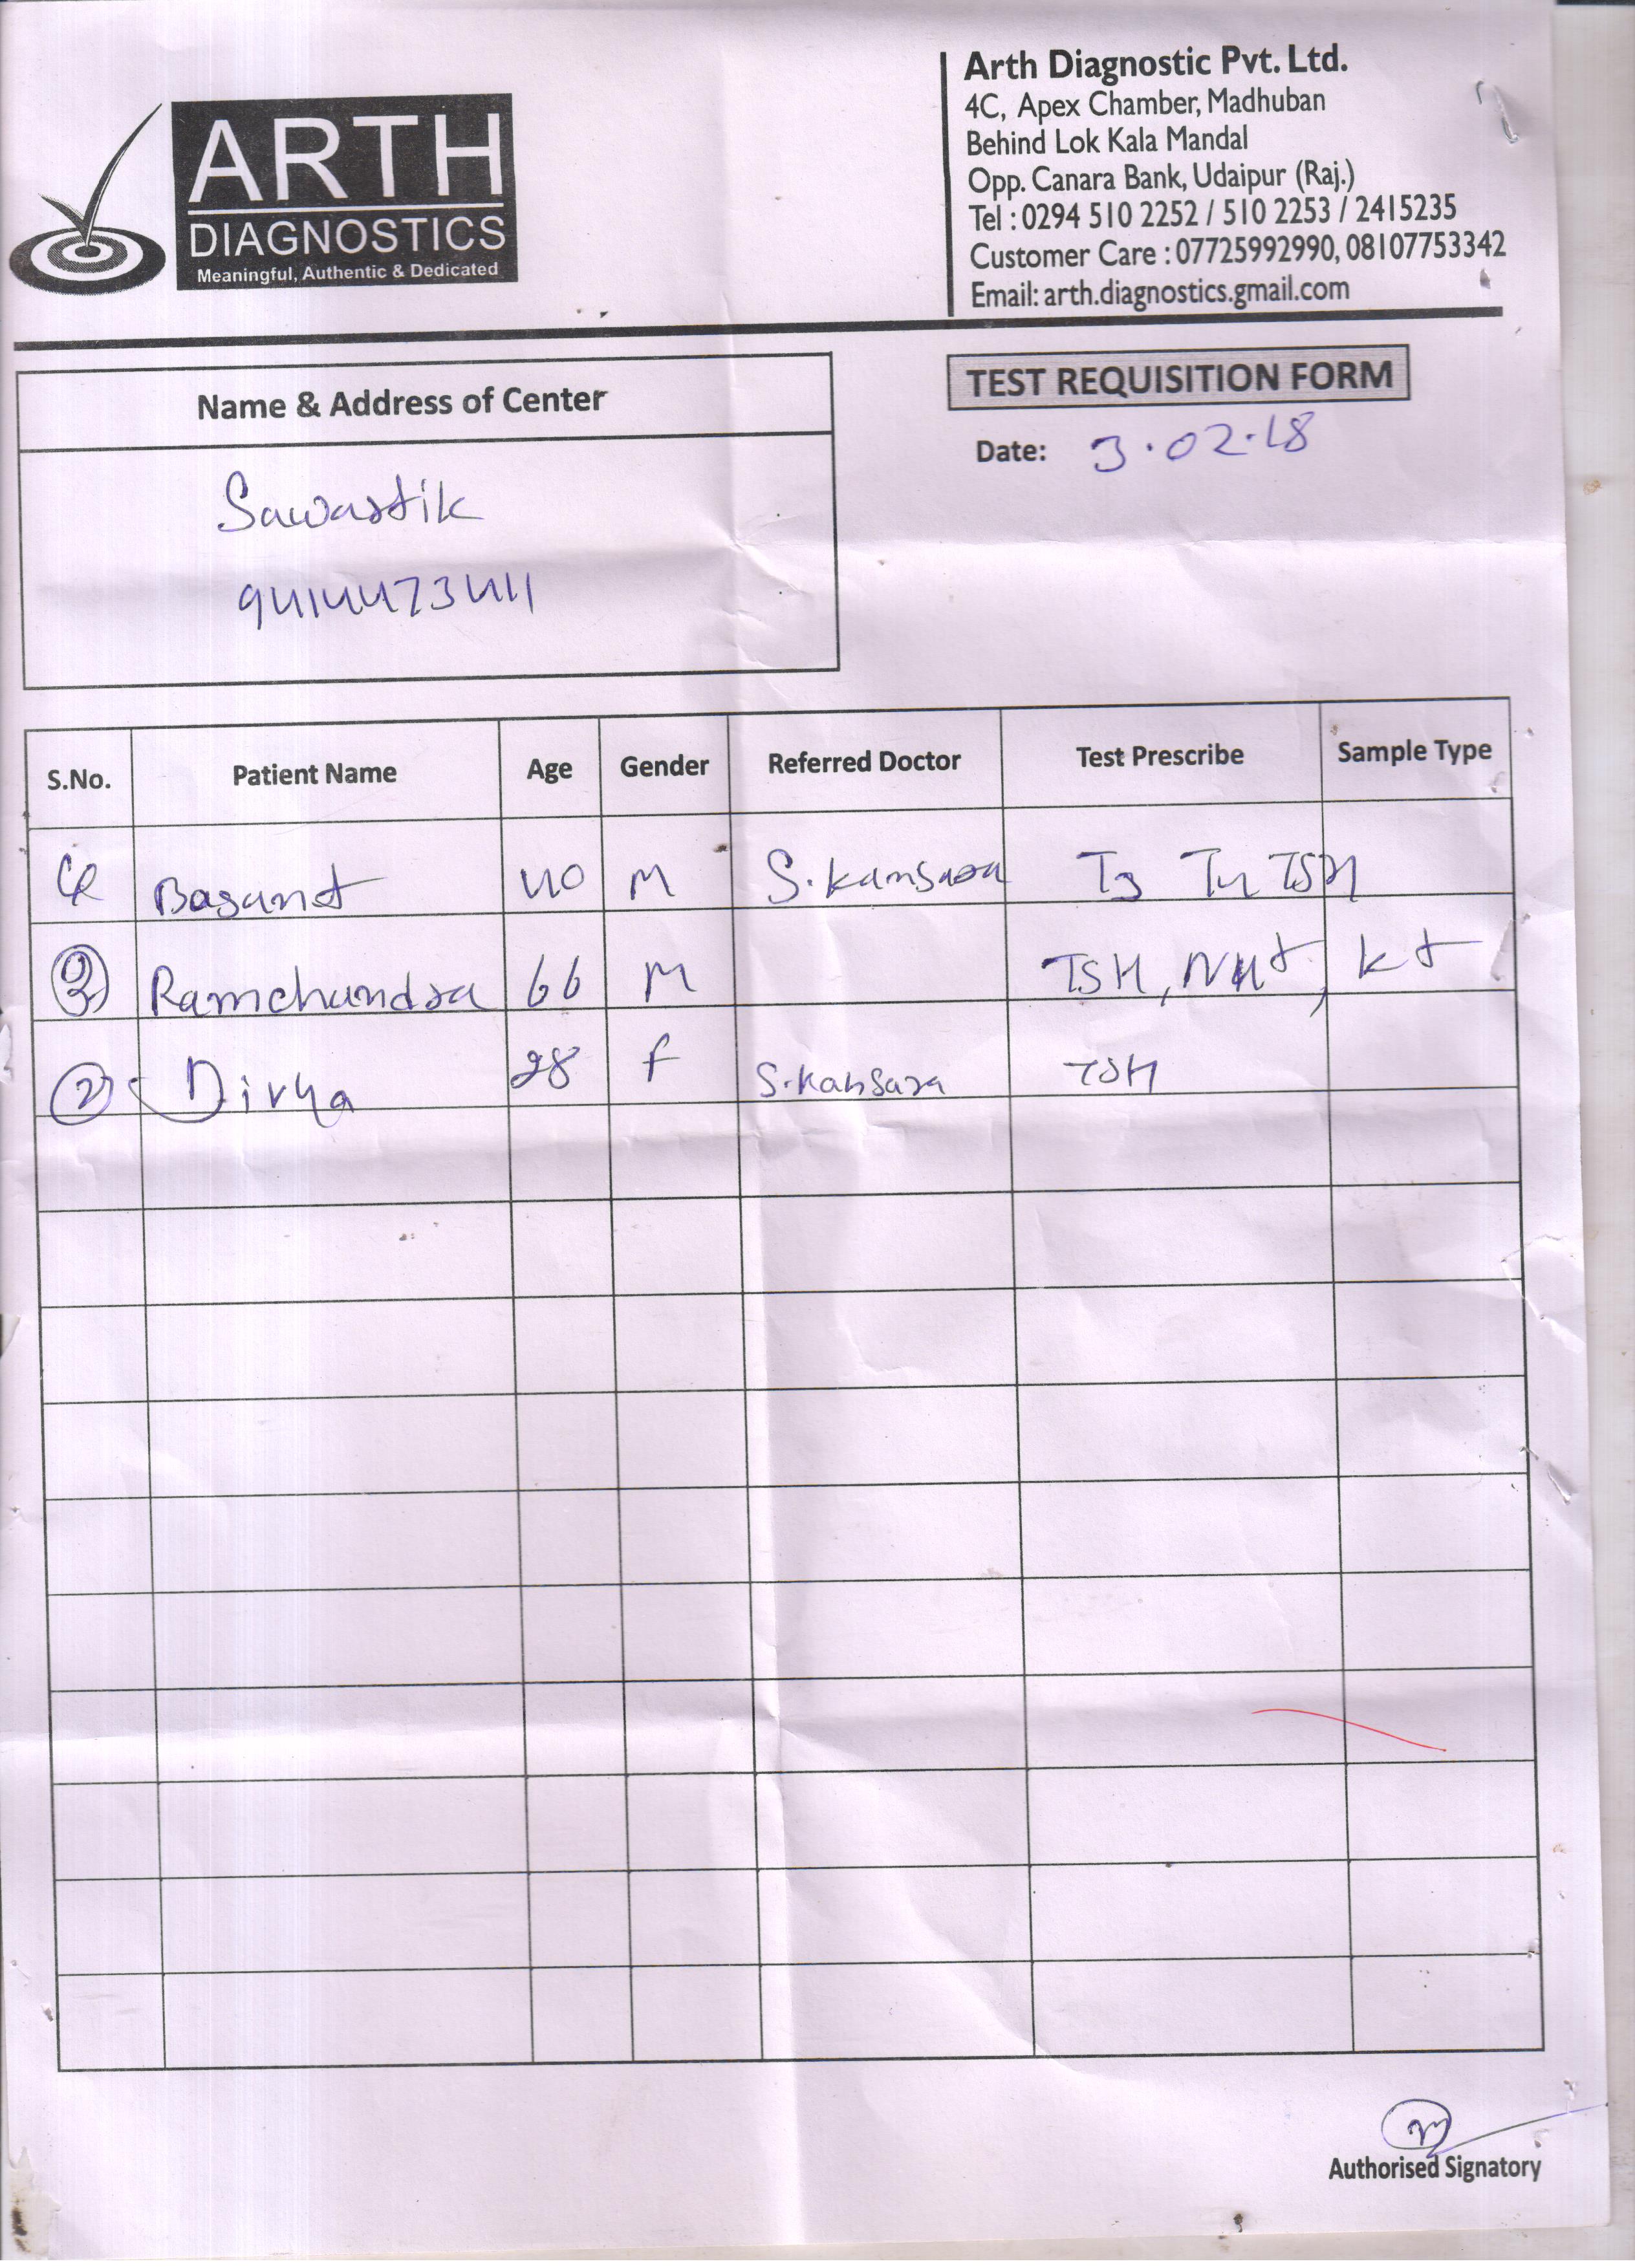 ARTH
DIAGNOSTICS
Meaningful, Authentic & Dedicated
Arth Diagnostic Pvt. Ltd.
4C, Apex Chamber, Madhuban
Behind Lok Kala Mandal
Opp. Canara Bank, Udaipur (Raj.)
Tel : 0294 510 2252 / 510 2253 / 2415235
Customer Care : 07725992990, 08107753342
Email: arth.diagnostics.gmail.com
Name & Address of Center
Sawastik
9414473411
TEST REQUISITION FORM
Date: 3.02.18
S.No. Patient Name Age Gender Referred Doctor Test Prescribe Sample Type
Basant 40 M S. Kansara T3 T4 TSH
3 Ramchandra 66 M TSH, Kt
2 Divya 28 F S. Kansara TSH
Authorised Signatory